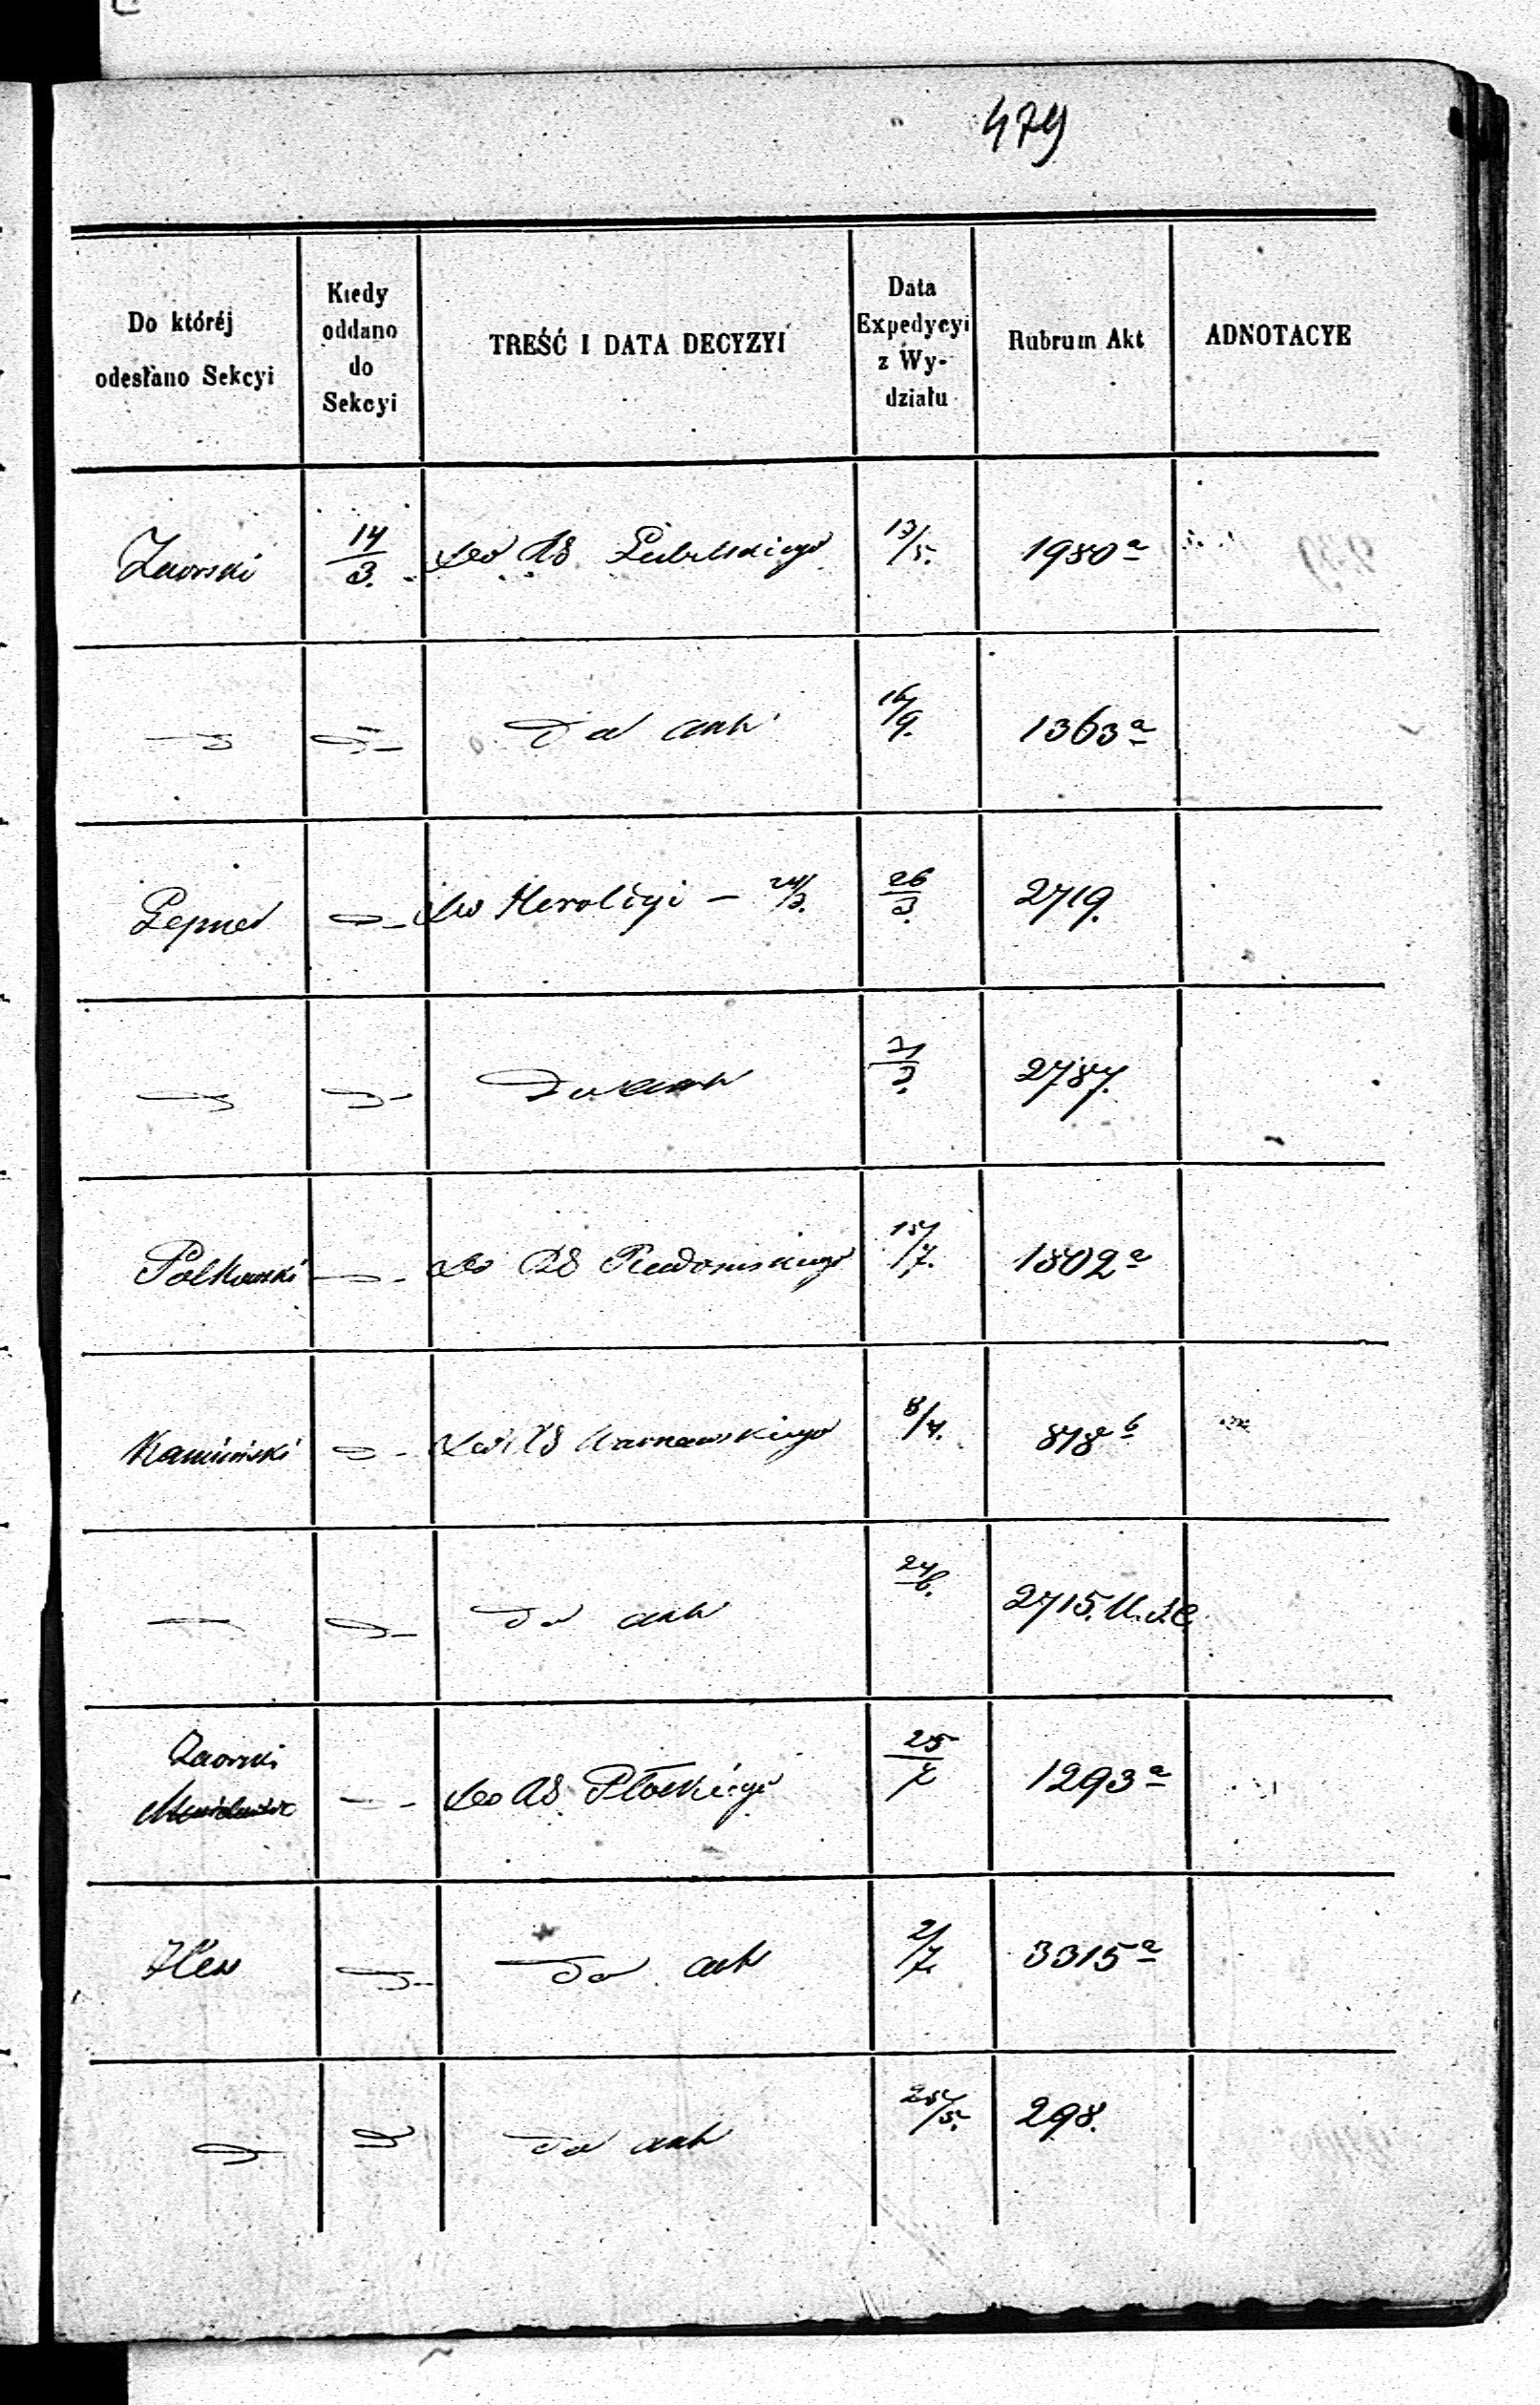 479
Do któréj odesłano Sekcyi
Kiedy oddano do Sekcyi
TREŚĆ I DATA DECYZYI
Data Expedycyi z Wy-działu
Rubrum Akt
ADNOTACYE
Zaorski 14/3. do RG Lubelskiego 13/5. 1980a
do akt 16/9. 1363a
Lepner do Heroldyi — 24/3. 26/3. 2719.
do akt 2787.
Polkowski do RG Radomskiego 15/7. 1802a
Kamiński do RG Warszawskiego 8/4. 878b
do akt 24/6. 2715.
Zaorski do RG Płockiego 25/7 1293a
do akt 2/7. 3315a
do akt 25/5. 298.